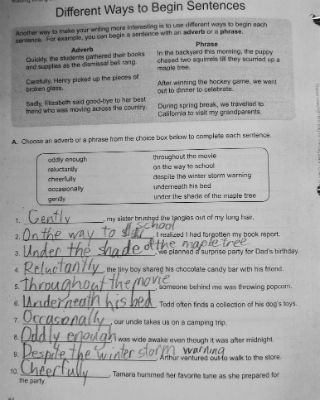 Different Ways to Begin Sentences
Another way to make your writing more interesting is to use different ways to begin each
sentence. For example, you can begin a sentence with an adverb or a phrase.
Adverb Phrase
Quickly, the students gathered their books and supplies as the dismissal bell rang. In the backyard this morning, the puppy chased two squirrels till they scurried up a maple tree.
Carefully, Henry picked up the pieces of broken glass. After winning the hockey game, we went out to dinner to celebrate.
Sadly, Elisabeth said good-bye to her best friend who was moving across the country. During spring break, we travelled to California to visit my grandparents.
A. Choose an adverb or a phrase from the choice box below to complete each sentence.
oddly enough throughout the movie
reluctantly on the way to school
cheerfully despite the winter storm warning
occasionally underneath his bed
gently under the shade of the maple tree
1. Gently, my sister brushed the tangles out of my long hair.
2. On the way to school, I realized I had forgotten my book report.
3. Under the shade of the maple tree, we planned a surprise party for Dad's birthday.
4. Reluctantly, the tiny boy shared his chocolate candy bar with his friend.
5. throughout the movie, someone behind me was throwing popcorn.
6. Underneath his bed, Todd often finds a collection of his dog's toys.
7. Occasonally, our uncle takes us on a camping trip.
8. Oddly enough, I was wide awake even though it was after midnight.
9. Despite the winter storm warning, Arthur ventured out to walk to the store.
10. Cheerfully, Tamara hummed her favorite tune as she prepared for
the party.